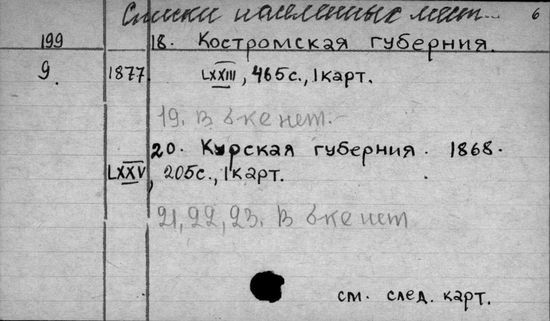 Списки населенных мест... 6
199 18. Костромская губерния.
9. 1877 LXXIII, 465 с., 1 карт.
19. В б-ке нет.
20. Курская губерния. 1868.
LXXV, 205 с., 1 карт.
21, 22, 23. В б-ке нет
см. след. карт.